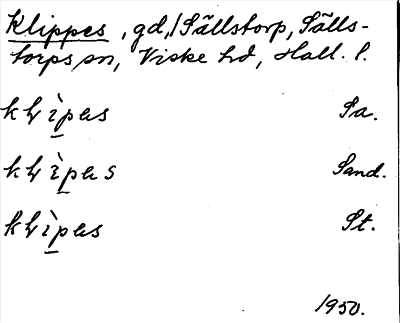 Klippes, gd, Sällstorp, Sälls-
torps sn, Viske hd, Hall. l.
klìpas Sa.
klìpas Sand.
klìpas St.
1950.